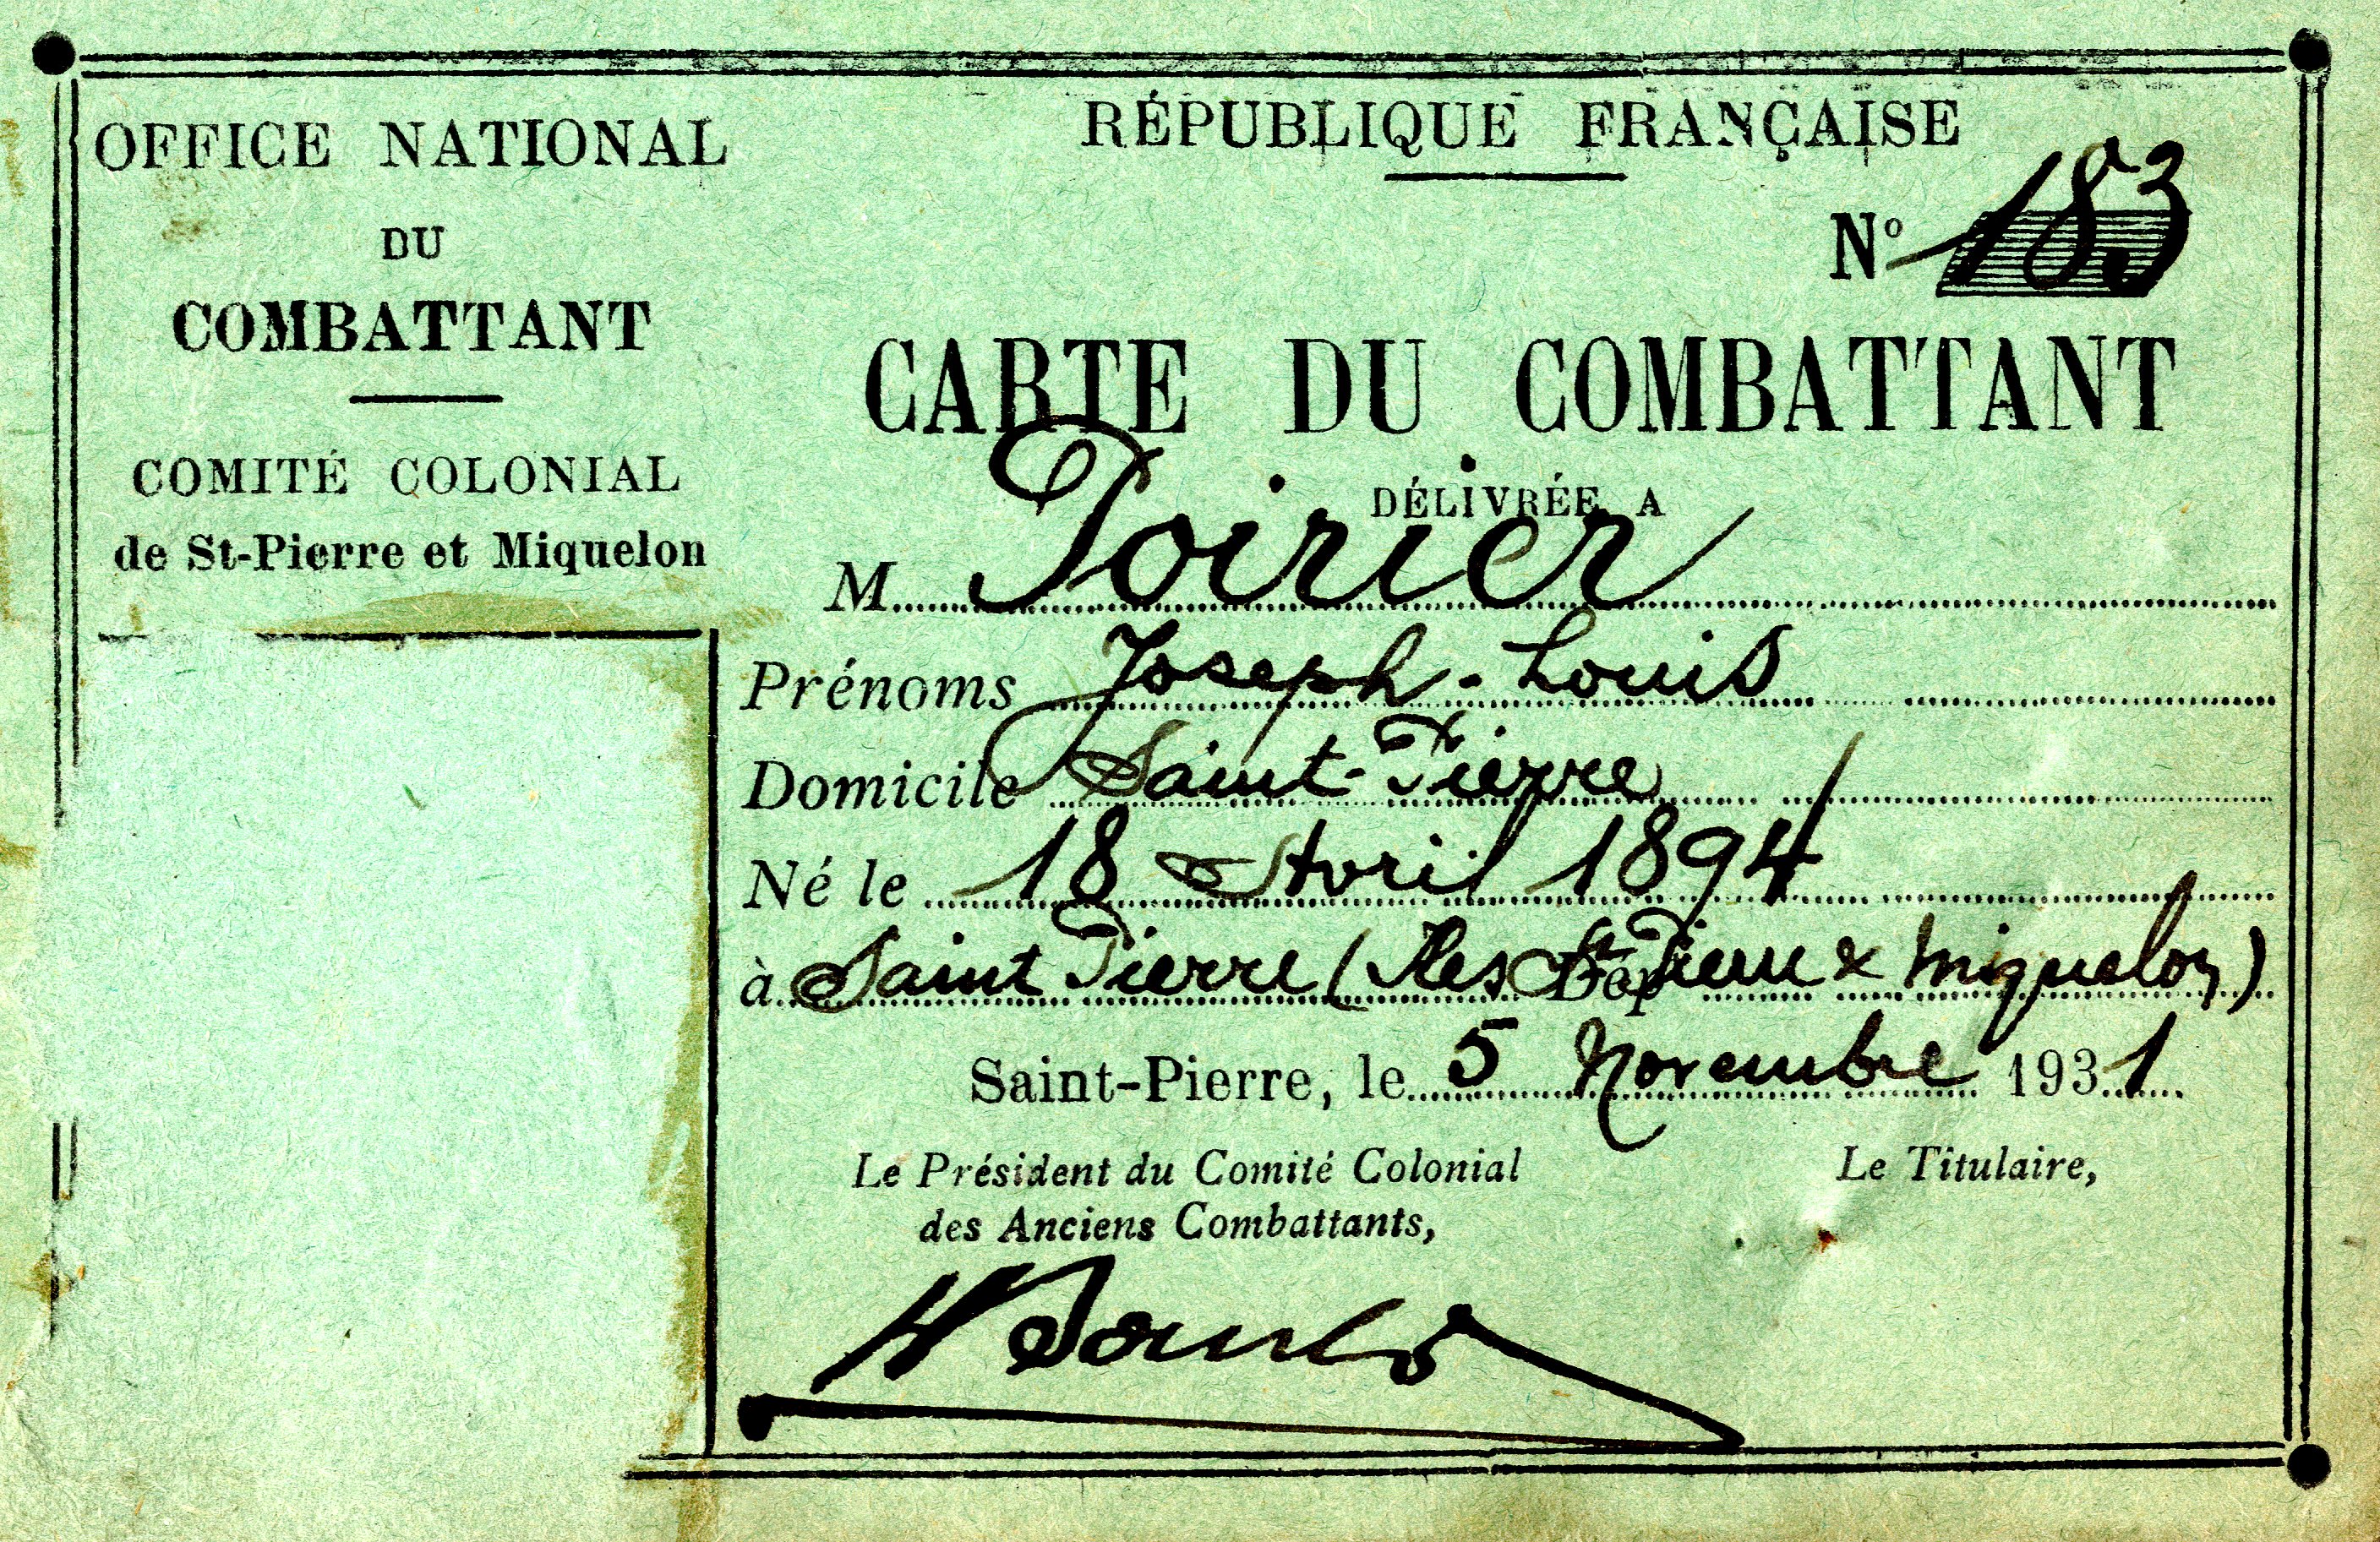 OFFICE NATIONAL
DU
COMBATTANT
COMITÉ COLONIAL
de St-Pierre et Miquelon
RÉPUBLIQUE FRANÇAISE
Nº 183
CARTE DU COMBATTANT
DÉLIVRÉE A
M Poirier
Prénoms Joseph-Louis
Domicile Saint-Pierre
Né le 18 Avril 1894
à Saint Pierre (Iles St Pierre & Miquelon)
Saint-Pierre, le 5 Novembre 1931
Le Président du Comité Colonial
des Anciens Combattants,
Le Titulaire,